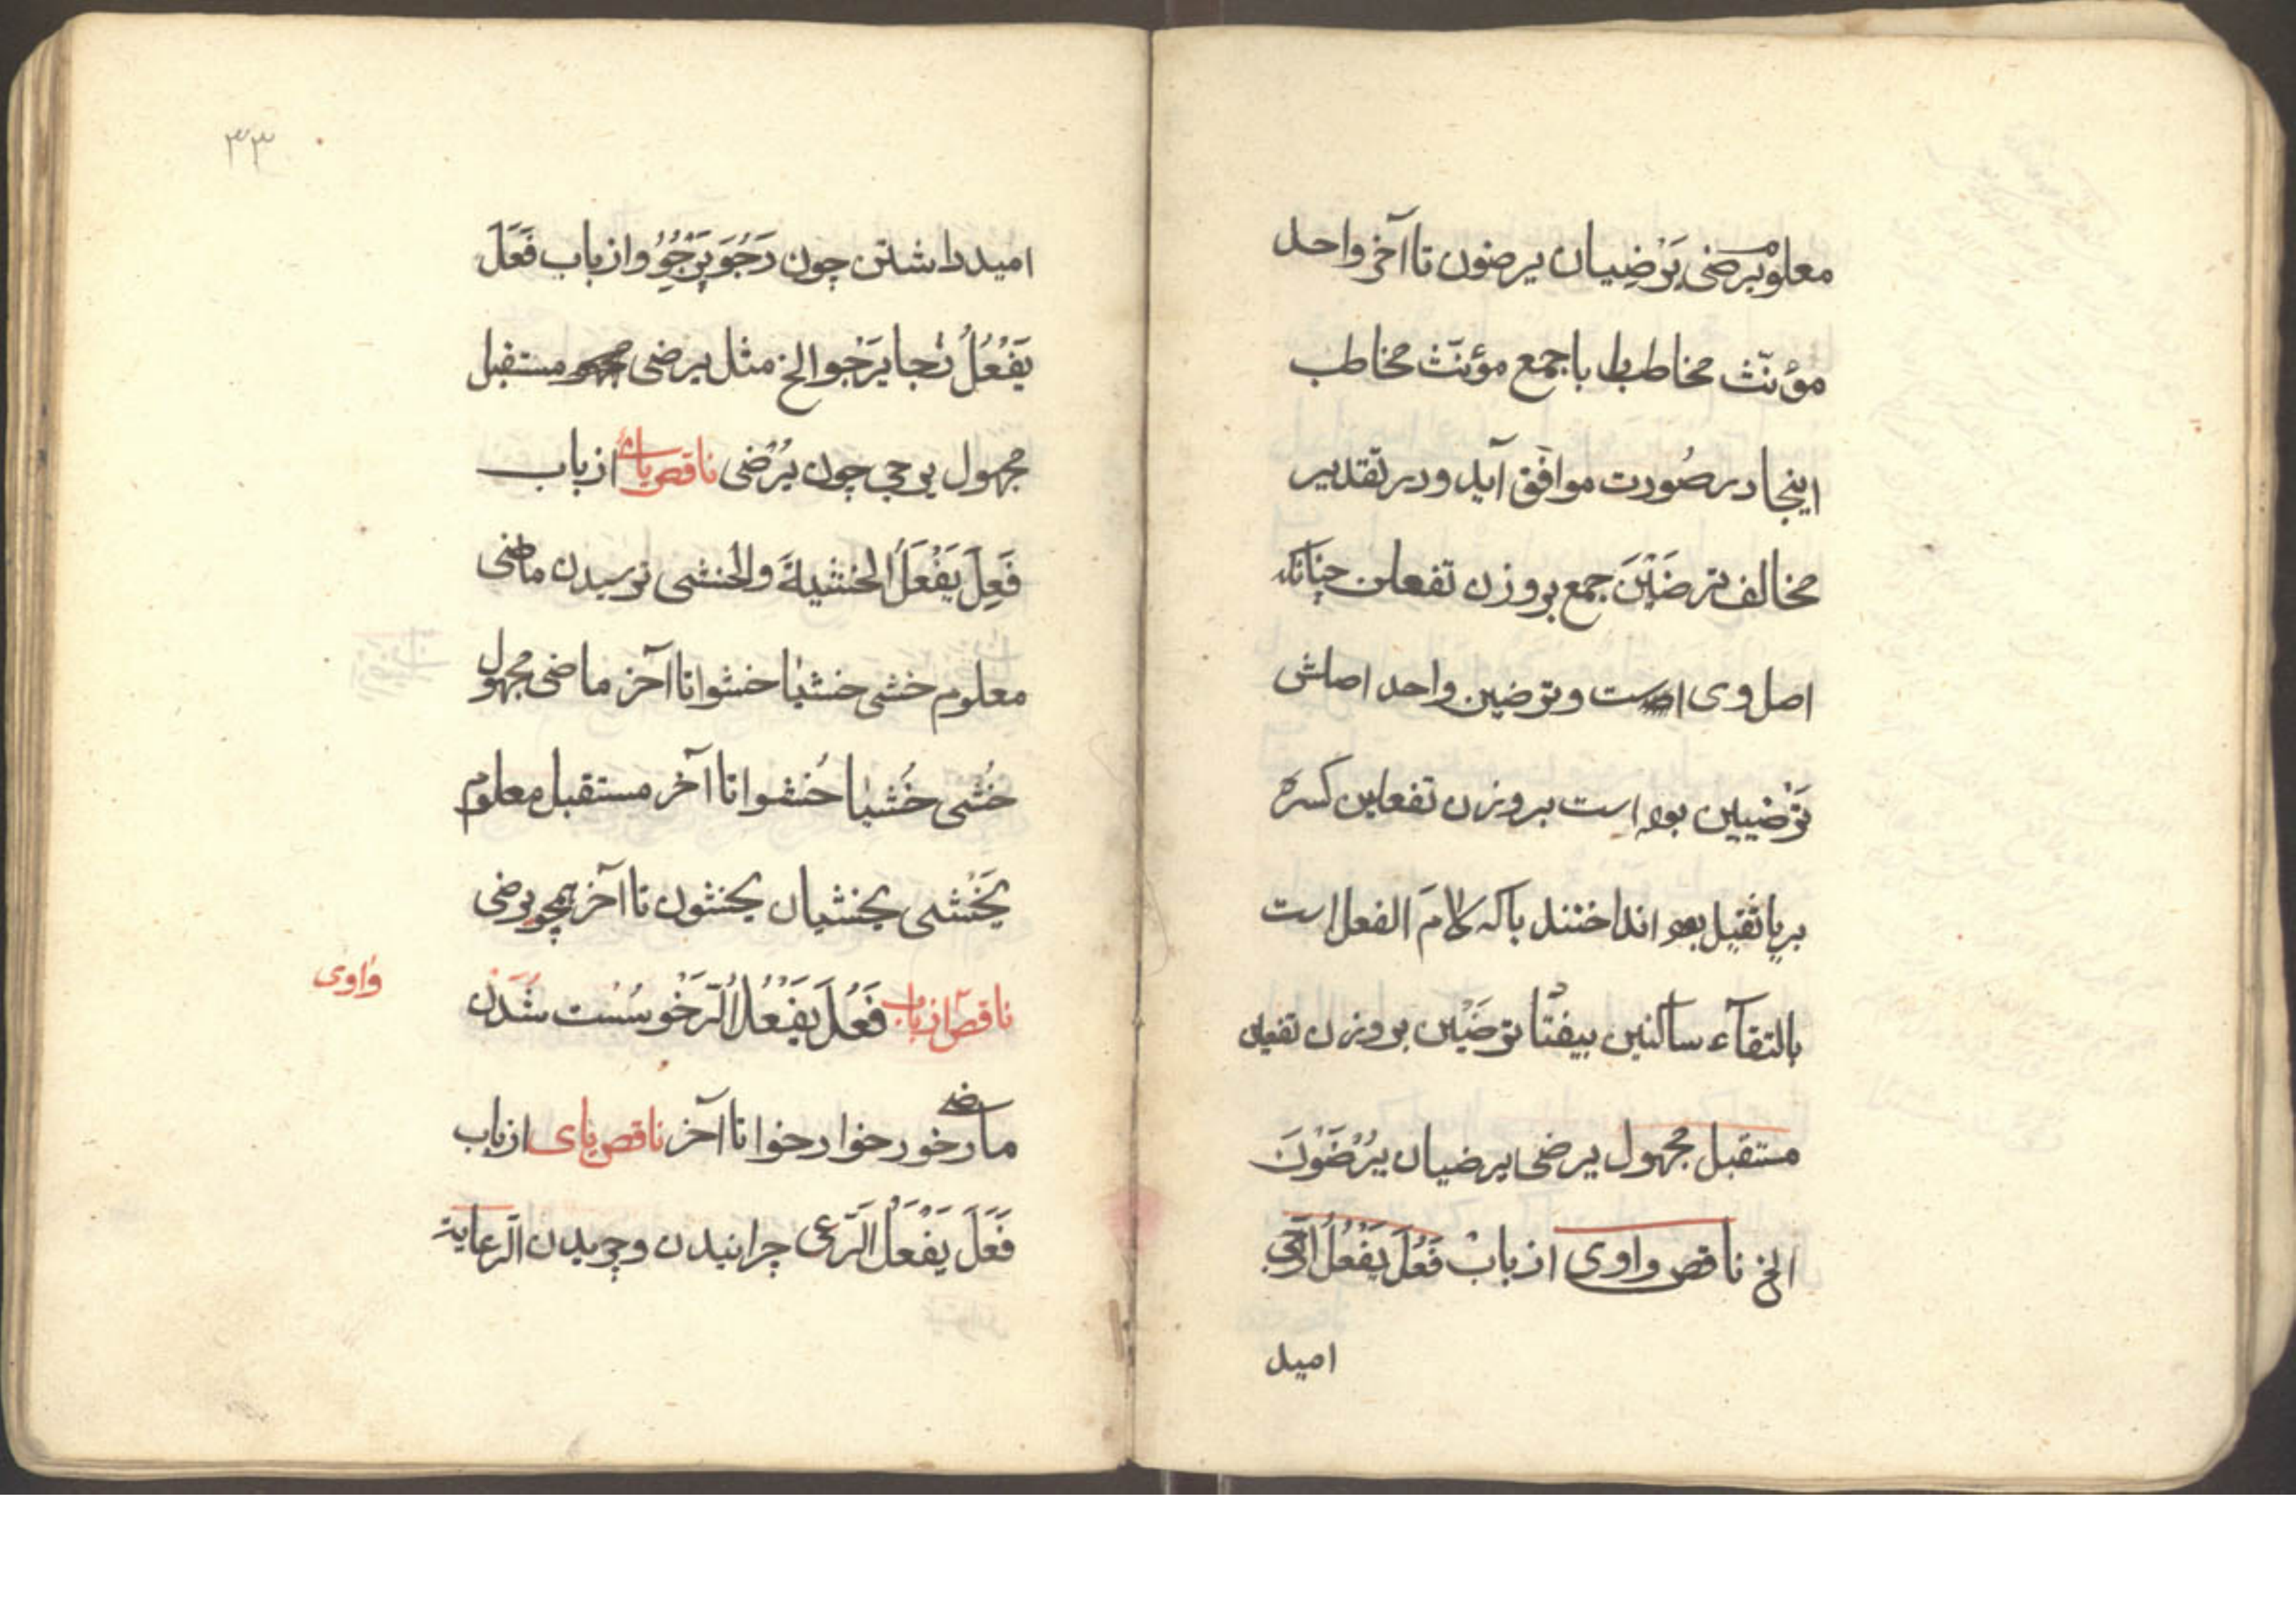 معلوم یرضی یَرْضِیان یرضون تا آخر واحد
مؤنّث مخاطب با جمع مؤنّث مخاطب
اینجا در صُورت موافق آید و در تقدیر
مخالف ترضَیْنَ جمع بر وزن تفعلن چنانکه
اصل وی است و ترضین واحد اصلش
تَرْضیین بوده است بر وزن تفعلین کسره
بر یا ثقیل بود انداختند یا که لامَ الفعل است
بالتقآء ساکنین بیفتا ترضَیْن بر وزن تفعین
مستقبل مجهول یرضی یرضیان یُرْضَوْنَ
الخ ناقص واوی از باب فَعَلَ یَفْعُلُ
امید
۳۳
امید داشتن چون رَجُوَ یَرْجُوُ و از باب فَعَلَ
یَفْعُلُ رجا یَرْجوا الخ مثل یرضی مستقبل
مجهول یرجی چون یُرْضی ناقص یائی از باب
فَعِلَ یَفْعَلُ الخشیة والخشی ترسیدن ماضی
معلوم خشی خشیا خشوا تا آخر ماضی مجهول
خُشی خُشیا خُشوا تا آخر مستقبل معلوم
یَخْشی یخشیان یخشون تا آخر همچو یرضی
ناقص از باب فَعُلَ یَفْعُلُ الرَخْو سُست شدن
واوی
ماضی رخو رخوا رخوا تا آخر ناقص یای از باب
فَعَلَ یَفْعَلُ الرَّعی چرانیدن و چریدن الرعایة